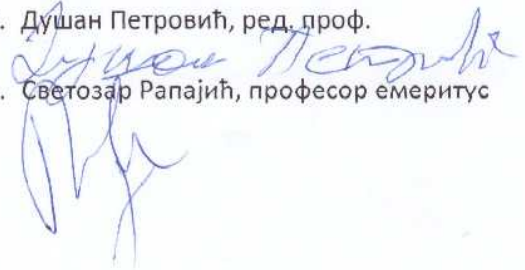 . Душан Петровић, ред. проф.
Душан Петровић
. Светозар Рапајић, професор емеритус